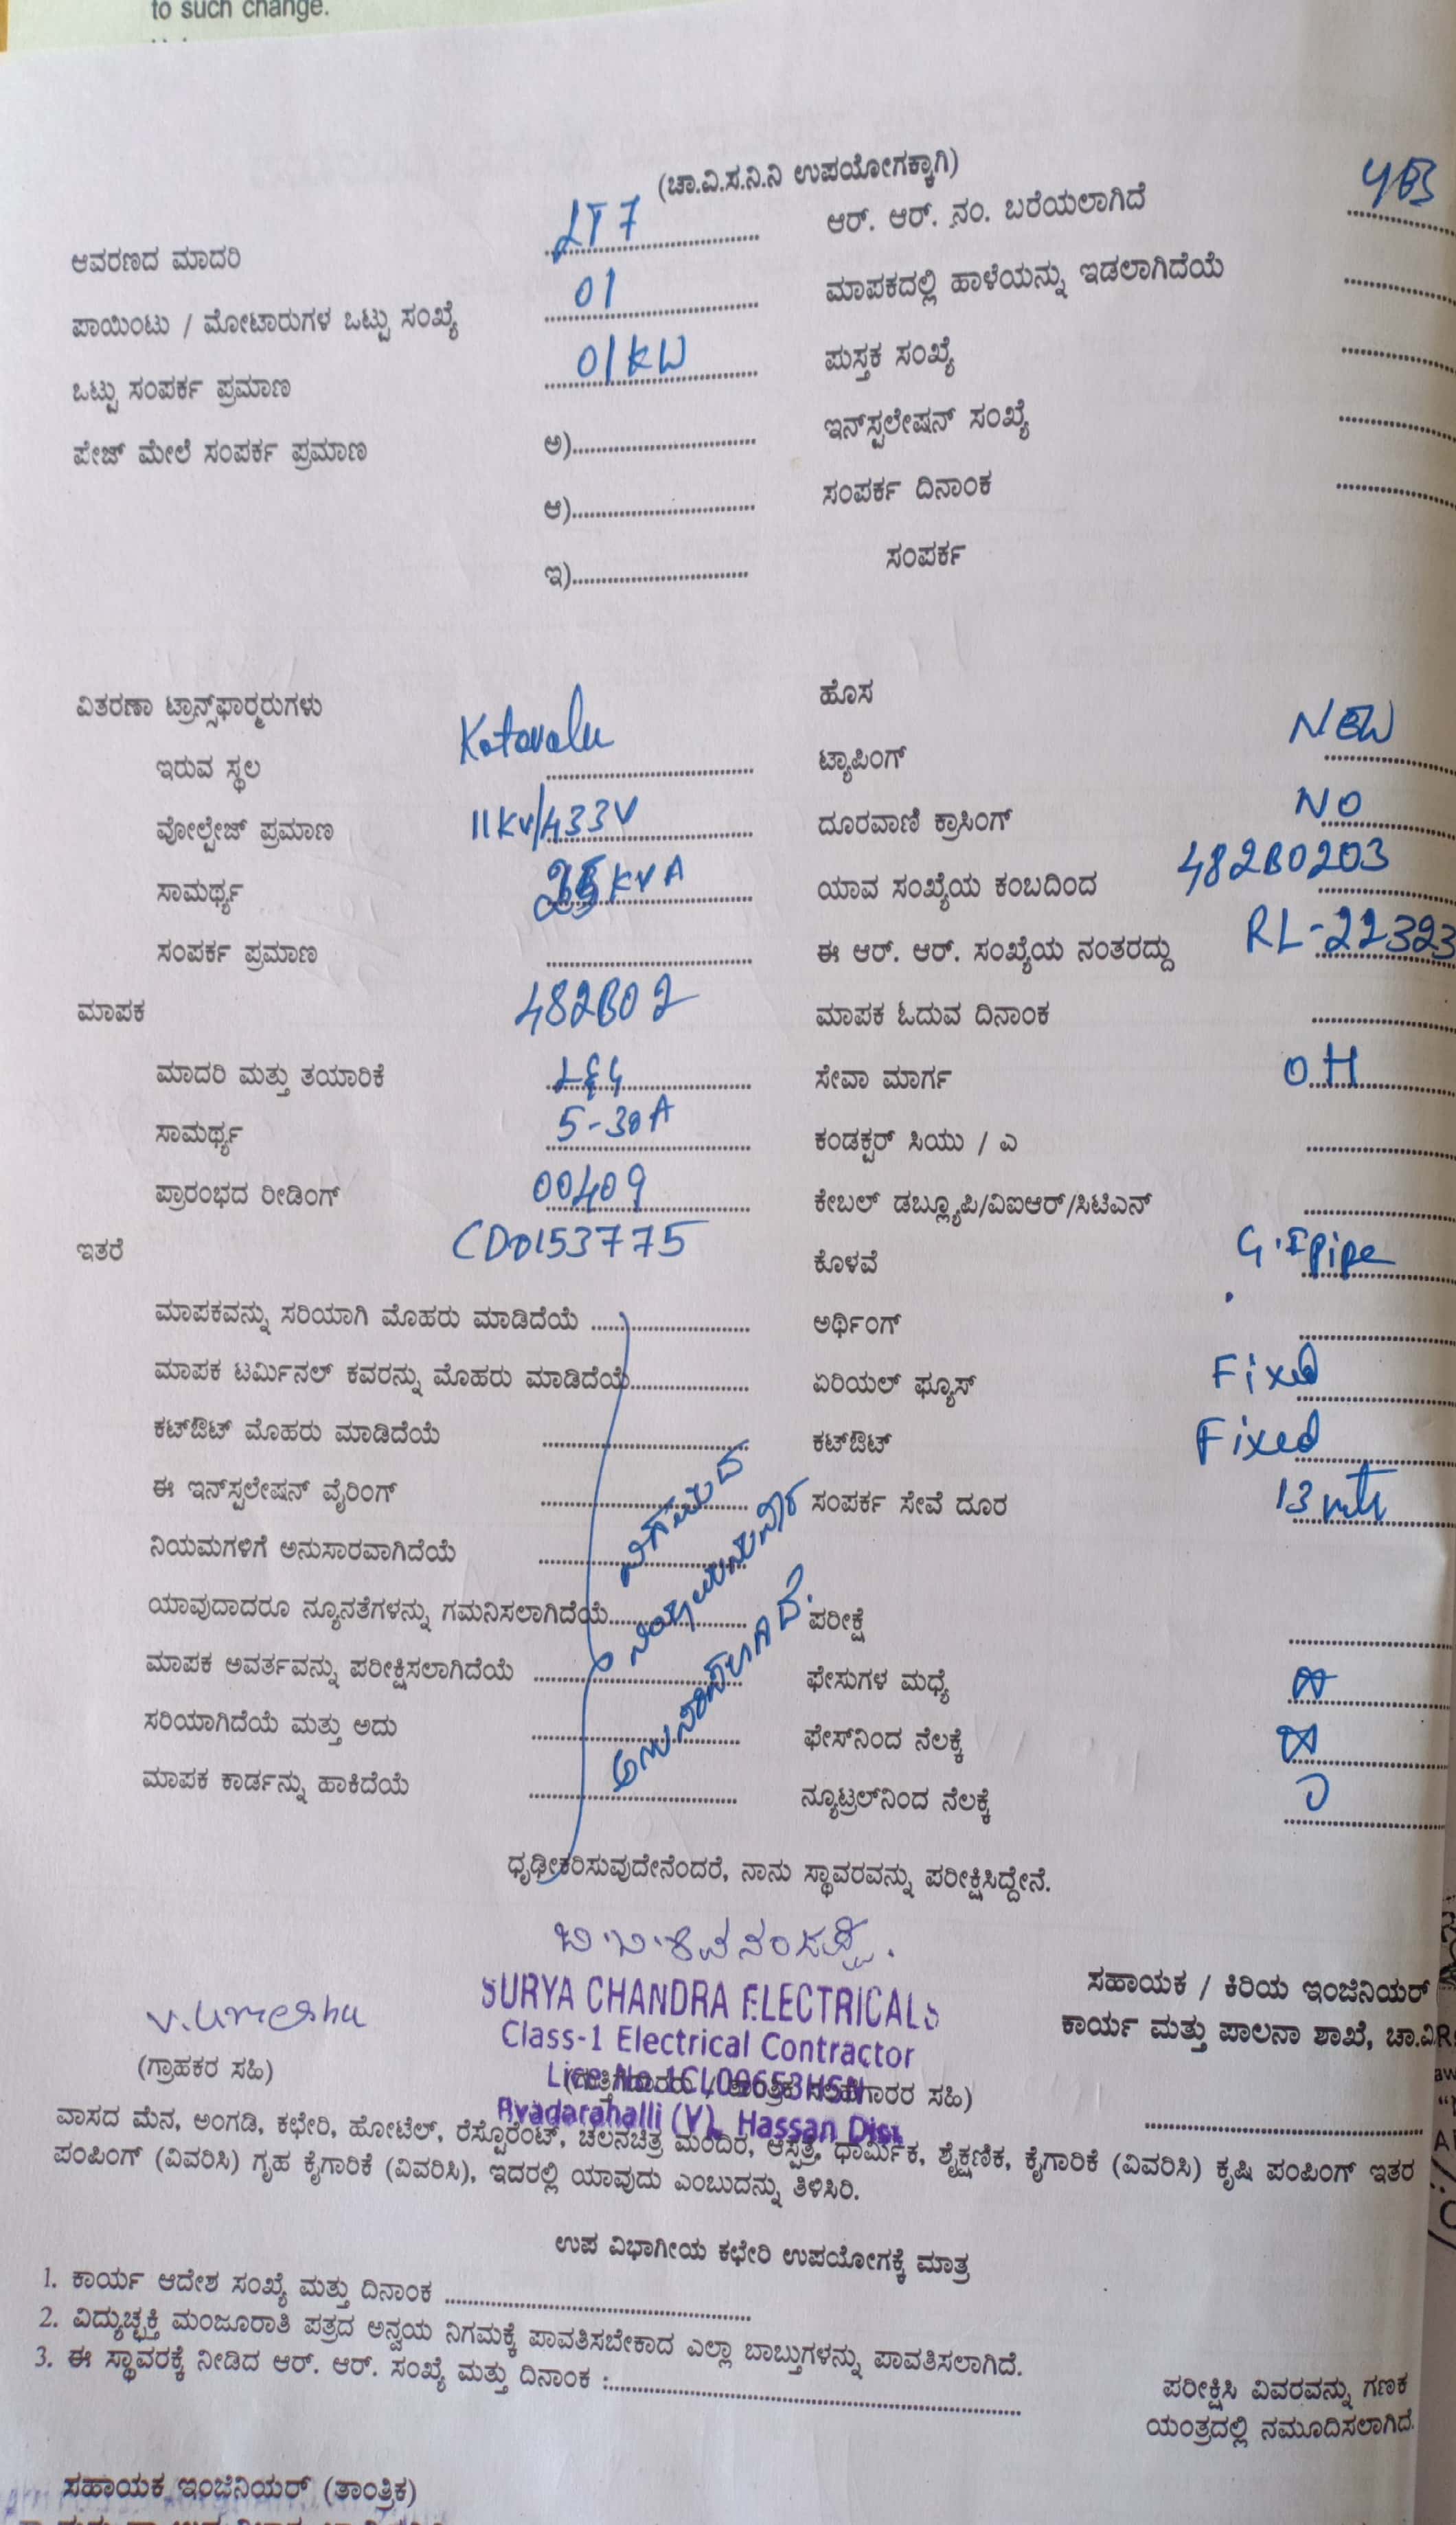 to such change.
(ಚಾ.ವಿ.ಸ.ನಿ.ನಿ ಉಪಯೋಗಕ್ಕಾಗಿ)
ಆವರಣದ ಮಾದರಿ LT7 ಆರ್. ಆರ್. ನಂ. ಬರೆಯಲಾಗಿದೆ
ಪಾಯಿಂಟು / ಮೋಟಾರುಗಳ ಒಟ್ಟು ಸಂಖ್ಯೆ 01 ಮಾಪಕದಲ್ಲಿ ಹಾಳೆಯನ್ನು ಇಡಲಾಗಿದೆಯೆ
ಒಟ್ಟು ಸಂಪರ್ಕ ಪ್ರಮಾಣ 01KW ಪುಸ್ತಕ ಸಂಖ್ಯೆ
ಪೇಜ್ ಮೇಲೆ ಸಂಪರ್ಕ ಪ್ರಮಾಣ ಅ) ಇನ್‌ಸ್ಟಲೇಷನ್ ಸಂಖ್ಯೆ
ಆ) ಸಂಪರ್ಕ ದಿನಾಂಕ
ಇ) ಸಂಪರ್ಕ
ವಿತರಣಾ ಟ್ರಾನ್ಸ್‌ಫಾರ್ಮರುಗಳು ಹೊಸ
ಇರುವ ಸ್ಥಲ Katavalu ಟ್ಯಾಪಿಂಗ್ NEW
ವೋಲ್ಟೇಜ್ ಪ್ರಮಾಣ 11KV/433V ದೂರವಾಣಿ ಕ್ರಾಸಿಂಗ್ NO
ಸಾಮರ್ಥ್ಯ KVA ಯಾವ ಸಂಖ್ಯೆಯ ಕಂಬದಿಂದ 482B0203
ಸಂಪರ್ಕ ಪ್ರಮಾಣ ಈ ಆರ್. ಆರ್. ಸಂಖ್ಯೆಯ ನಂತರದ್ದು RL-22323
ಮಾಪಕ 482B02 ಮಾಪಕ ಓದುವ ದಿನಾಂಕ
ಮಾದರಿ ಮತ್ತು ತಯಾರಿಕೆ L&G ಸೇವಾ ಮಾರ್ಗ OH
ಸಾಮರ್ಥ್ಯ 5-30A ಕಂಡಕ್ಟರ್ ಸಿಯು / ಎ
ಪ್ರಾರಂಭದ ರೀಡಿಂಗ್ 00409 ಕೇಬಲ್ ಡಬ್ಲ್ಯೂಪಿ/ವಿಐಆರ್/ಸಿಟಿಎನ್
ಇತರೆ CD0153775 ಕೊಳವೆ G.I pipe
ಮಾಪಕವನ್ನು ಸರಿಯಾಗಿ ಮೊಹರು ಮಾಡಿದೆಯೆ ಅರ್ಥಿಂಗ್
ಮಾಪಕ ಟರ್ಮಿನಲ್ ಕವರನ್ನು ಮೊಹರು ಮಾಡಿದೆಯೆ ಏರಿಯಲ್ ಫ್ಯೂಸ್ Fixed
ಕಟ್‌ಔಟ್ ಮೊಹರು ಮಾಡಿದೆಯೆ ಕಟ್‌ಔಟ್ Fixed
ಈ ಇನ್‌ಸ್ಟಲೇಷನ್ ವೈರಿಂಗ್ ಸಂಪರ್ಕ ಸೇವೆ ದೂರ 13 mtr
ನಿಯಮಗಳಿಗೆ ಅನುಸಾರವಾಗಿದೆಯೆ
ನಿಗಮದ
ನಿಯಮಾನುಸಾರ
ಅನುಸರಿಸಲಾಗಿದೆ.
ಯಾವುದಾದರೂ ನ್ಯೂನತೆಗಳನ್ನು ಗಮನಿಸಲಾಗಿದೆಯೆ ಪರೀಕ್ಷೆ
ಮಾಪಕ ಅವರ್ತವನ್ನು ಪರೀಕ್ಷಿಸಲಾಗಿದೆಯೆ ಫೇಸುಗಳ ಮಧ್ಯೆ
ಸರಿಯಾಗಿದೆಯೆ ಮತ್ತು ಅದು ಫೇಸ್‌ನಿಂದ ನೆಲಕ್ಕೆ
ಮಾಪಕ ಕಾರ್ಡನ್ನು ಹಾಕಿದೆಯೆ ನ್ಯೂಟ್ರಲ್‌ನಿಂದ ನೆಲಕ್ಕೆ
ಧೃಢೀಕರಿಸುವುದೇನೆಂದರೆ, ನಾನು ಸ್ಥಾವರವನ್ನು ಪರೀಕ್ಷಿಸಿದ್ದೇನೆ.
SURYA CHANDRA ELECTRICALS
Class-1 Electrical Contractor
Lice No.1CL00653HSN
Ayadarahalli (V), Hassan Dist.
V. Umesha
(ಗ್ರಾಹಕರ ಸಹಿ)
ಸಹಾಯಕ / ಕಿರಿಯ ಇಂಜಿನಿಯರ್
ಕಾರ್ಯ ಮತ್ತು ಪಾಲನಾ ಶಾಖೆ, ಚಾ.ವಿ
ವಾಸದ ಮನೆ, ಅಂಗಡಿ, ಕಛೇರಿ, ಹೋಟೆಲ್, ರೆಸ್ಟೊರೆಂಟ್, ಚಲನಚಿತ್ರ ಮಂದಿರ, ಆಸ್ಪತ್ರೆ, ಧಾರ್ಮಿಕ, ಶೈಕ್ಷಣಿಕ, ಕೈಗಾರಿಕೆ (ವಿವರಿಸಿ) ಕೃಷಿ ಪಂಪಿಂಗ್ ಇತರ
ಪಂಪಿಂಗ್ (ವಿವರಿಸಿ) ಗೃಹ ಕೈಗಾರಿಕೆ (ವಿವರಿಸಿ), ಇದರಲ್ಲಿ ಯಾವುದು ಎಂಬುದನ್ನು ತಿಳಿಸಿರಿ.
ಉಪ ವಿಭಾಗೀಯ ಕಛೇರಿ ಉಪಯೋಗಕ್ಕೆ ಮಾತ್ರ
1. ಕಾರ್ಯ ಆದೇಶ ಸಂಖ್ಯೆ ಮತ್ತು ದಿನಾಂಕ
2. ವಿದ್ಯುಚ್ಛಕ್ತಿ ಮಂಜೂರಾತಿ ಪತ್ರದ ಅನ್ವಯ ನಿಗಮಕ್ಕೆ ಪಾವತಿಸಬೇಕಾದ ಎಲ್ಲಾ ಬಾಬ್ತುಗಳನ್ನು ಪಾವತಿಸಲಾಗಿದೆ.
3. ಈ ಸ್ಥಾವರಕ್ಕೆ ನೀಡಿದ ಆರ್. ಆರ್. ಸಂಖ್ಯೆ ಮತ್ತು ದಿನಾಂಕ :
ಪರೀಕ್ಷಿಸಿ ವಿವರವನ್ನು ಗಣಕ
ಯಂತ್ರದಲ್ಲಿ ನಮೂದಿಸಲಾಗಿದೆ.
ಸಹಾಯಕ ಇಂಜಿನಿಯರ್ (ತಾಂತ್ರಿಕ)